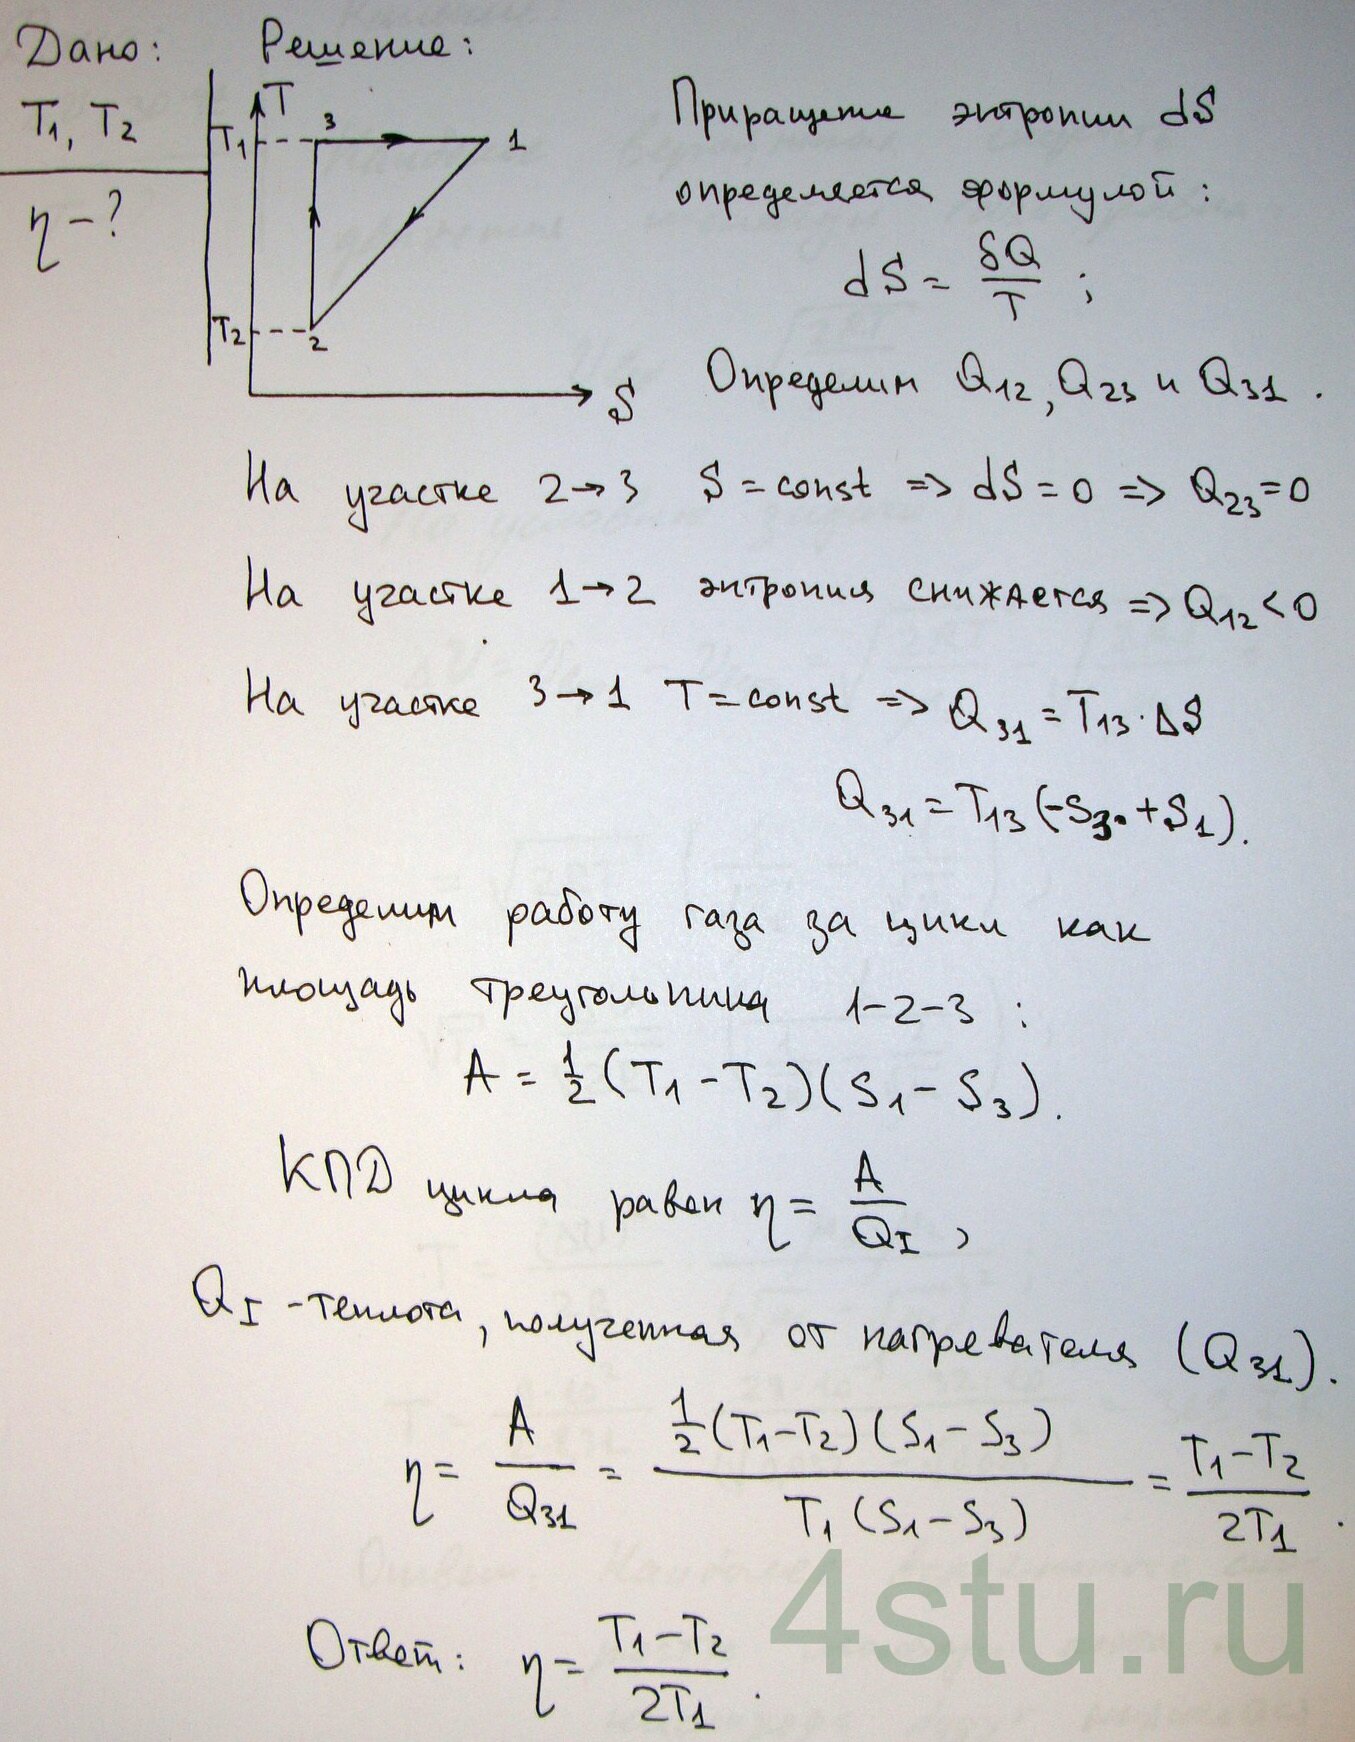 Дано:
T₁, T₂
η – ?
Решение:
T
T₁
3
1
T₂
2
S
Приращение энтропии dS
определяется формулой:
dS = δQ/T ;
Определим Q₁₂, Q₂₃ и Q₃₁.
На участке 2→3 S = const => dS = 0 => Q₂₃ = 0
На участке 1→2 энтропия снижается => Q₁₂ < 0
На участке 3→1 T = const => Q₃₁ = T₁₃ · ΔS
Q₃₁ = T₁₃ (-S₃ + S₁).
Определим работу газа за цикл как
площадь треугольника 1-2-3 :
A = 1/2 (T₁ - T₂)(S₁ - S₃).
КПД цикла равен η = A/Q_I ,
Q_I - теплота, полученная от нагревателя (Q₃₁).
η = A/Q₃₁ = 1/2 (T₁-T₂)(S₁-S₃) / T₁(S₁-S₃) = T₁-T₂ / 2T₁ .
Ответ: η = T₁-T₂ / 2T₁ .
4stu.ru